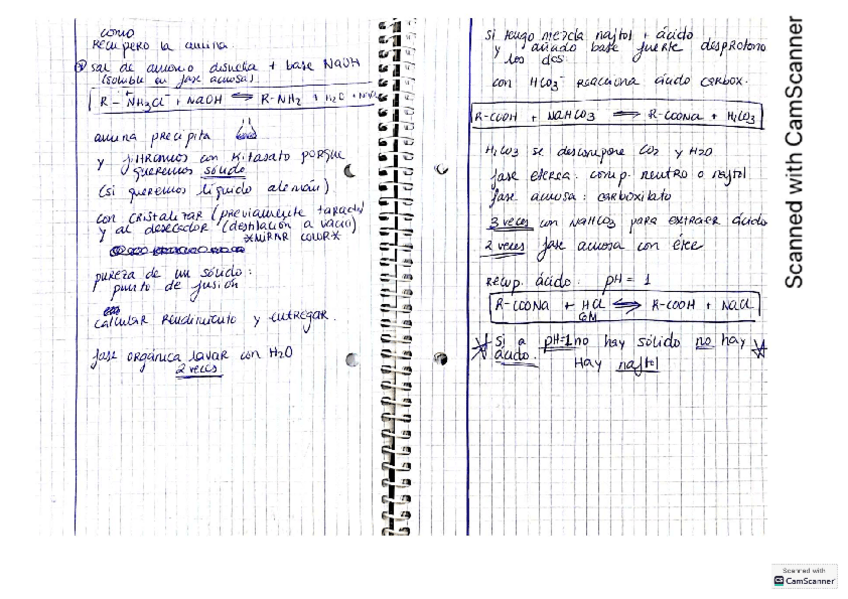 como
recupero la amina.
sal de amonio disuelta + base NaOH
(soluble en fase acuosa).
R-NH3Cl + NaOH ⇌ R-NH2 + H2O +
amina precipita
y filtramos con Kitasato porque
queremos sólido
(si queremos líquido alemán)
con cristalizar (previamente tarado)
y al desecador (destilación a vacío)
*MIRAR COLOR*
pureza de un sólido:
punto de fusión
calcular rendimiento y entregar.
fase orgánica lavar con H2O
2 veces
si tengo mezcla naftol + ácido
y añado base fuerte desprotono
los dos
con HCO3⁻ reacciona ácido carbox.
R-COOH + NaHCO3 ⇌ R-COONa + H2CO3
H2CO3 se descompone CO2 y H2O
fase eterea: comp. neutro o naftol
fase acuosa: carboxilato
3 veces con NaHCO3 para extraer ácido
2 veces fase acuosa con éter
recup. ácido. pH = 1
R-COONa + HCl ⇌ R-COOH + NaCl
6M
si a pH=1 no hay sólido no hay
ácido. Hay naftol
Scanned with CamScanner
Scanned with
CS CamScanner